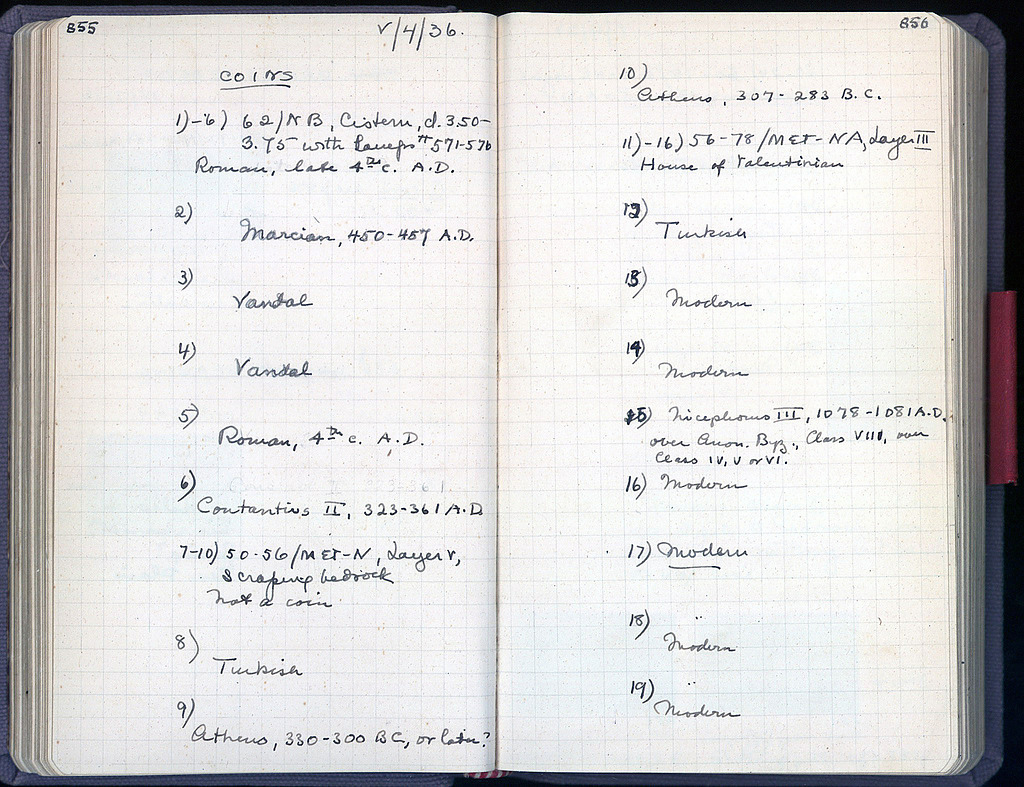 855
V/4/36.
COINS
1)-6) 62/NB, Cistern, d. 3.50-
3.75 with Lamps # 571-576
Roman, late 4th c. A.D.
2)
Marcian, 450-457 A.D.
3)
Vandal
4)
Vandal
5)
Roman, 4th c. A.D.
6)
Contantius II, 323-361 A.D.
7-10) 50-56/MET-N, Layer V,
scraping bedrock
Not a coin
8)
Turkish
9)
Athens, 330-300 BC, or later?
856
10)
Athens, 307-283 B.C.
11)-16) 56-78/MET-NA, Layer III
House of Valentinian
12)
Turkish
13)
Modern
14)
Modern
15) Nicephorus III, 1078-1081 A.D.
over Anon. Byz., Class VIII, over
Class IV, V or VI.
16) Modern
17) Modern
18) "
Modern
19) "
Modern